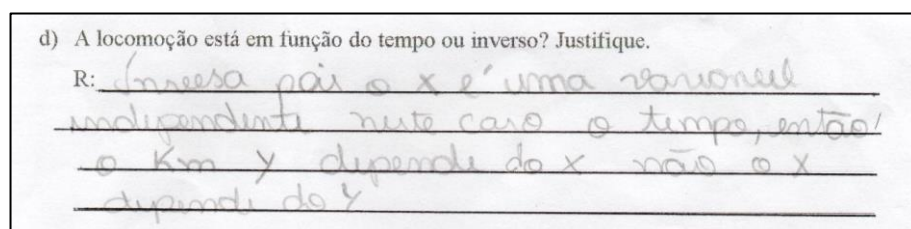 d) A locomoção está em função do tempo ou inverso? Justifique.
R: Inversa pois o x é uma variavel
independente neste caso o tempo, então
o Km y depende do x não o x
depende do y